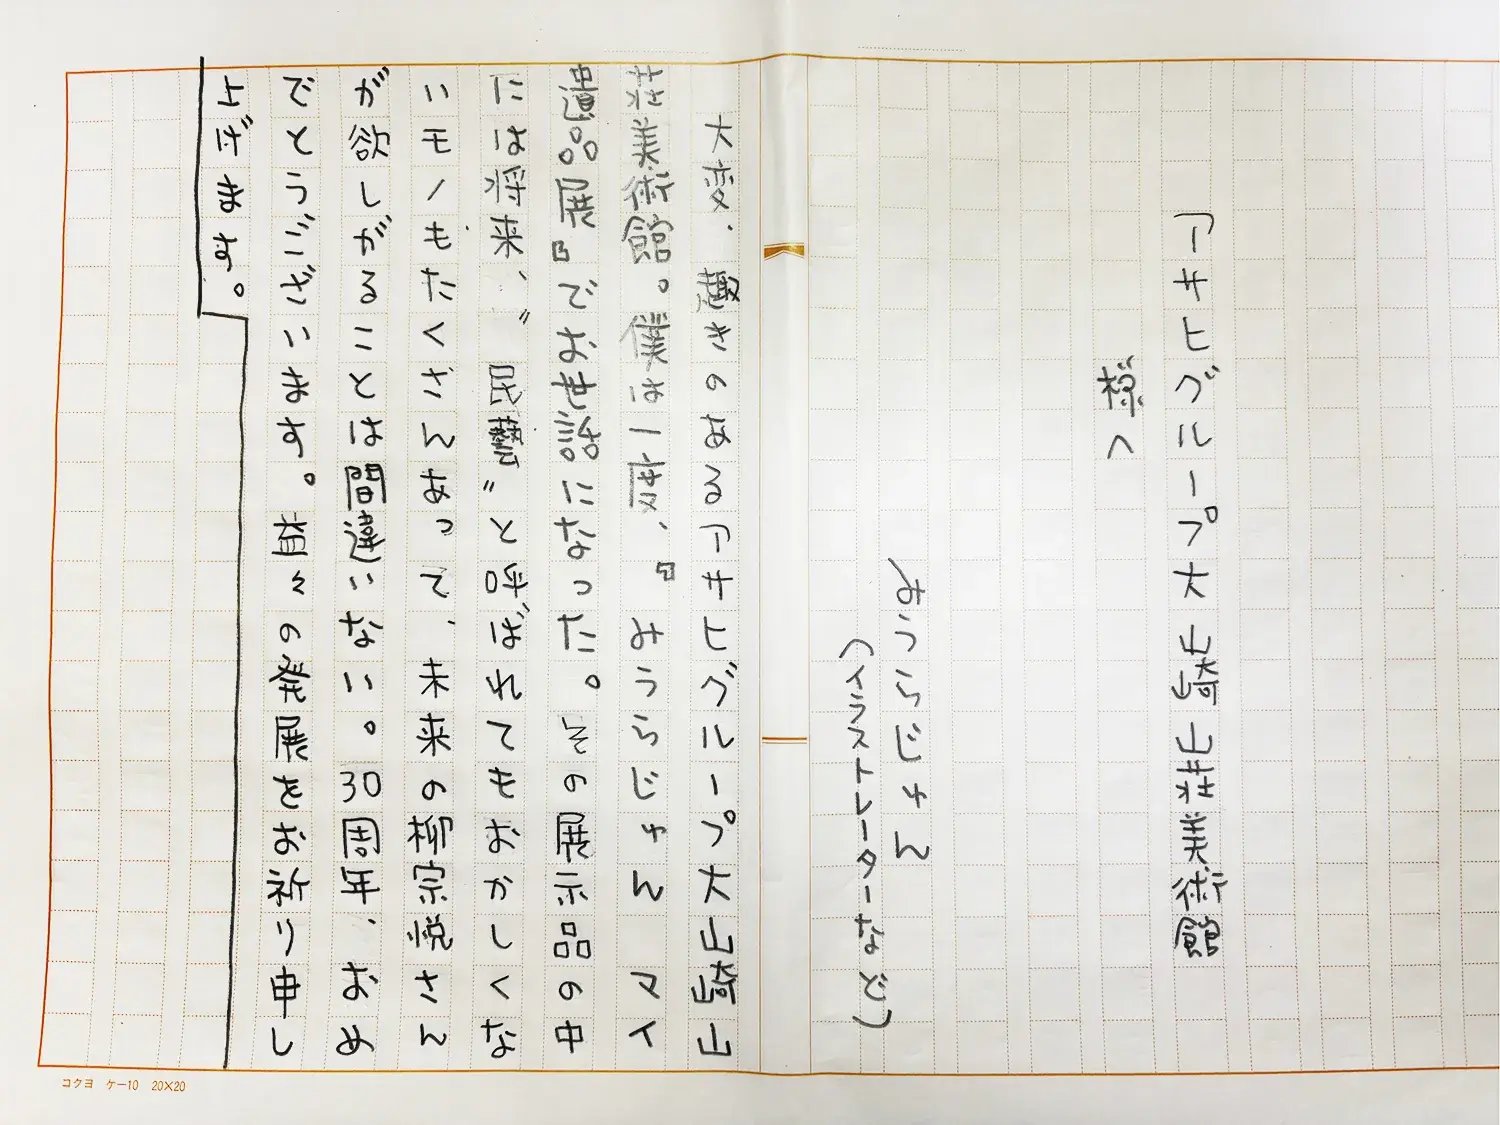 アサヒグループ大山崎山荘美術館
様へ
みうらじゅん
(イラストレーターなど)
大変、趣きのあるアサヒグループ大山崎山
荘美術館。僕は一度、『みうらじゅん マイ
遺品展』でお世話になった。その展示品の中
には将来、〝民藝〟と呼ばれてもおかしくな
いモノもたくさんあって、未来の柳宗悦さん
が欲しがることは間違いない。30周年、おめ
でとうございます。益々の発展をお祈り申し
上げます。
コクヨ ケー10 20×20